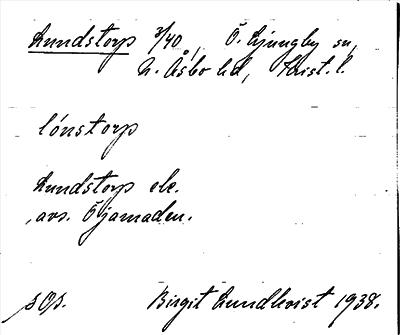 Lundstorp 3/40, Ö. Ljungby sn,
N. Åsbo hd, Krist. l.
lónstorp
Lundstorp ek.
, avs. Öjamaden.
sOs. Birgit Lundkvist 1938.